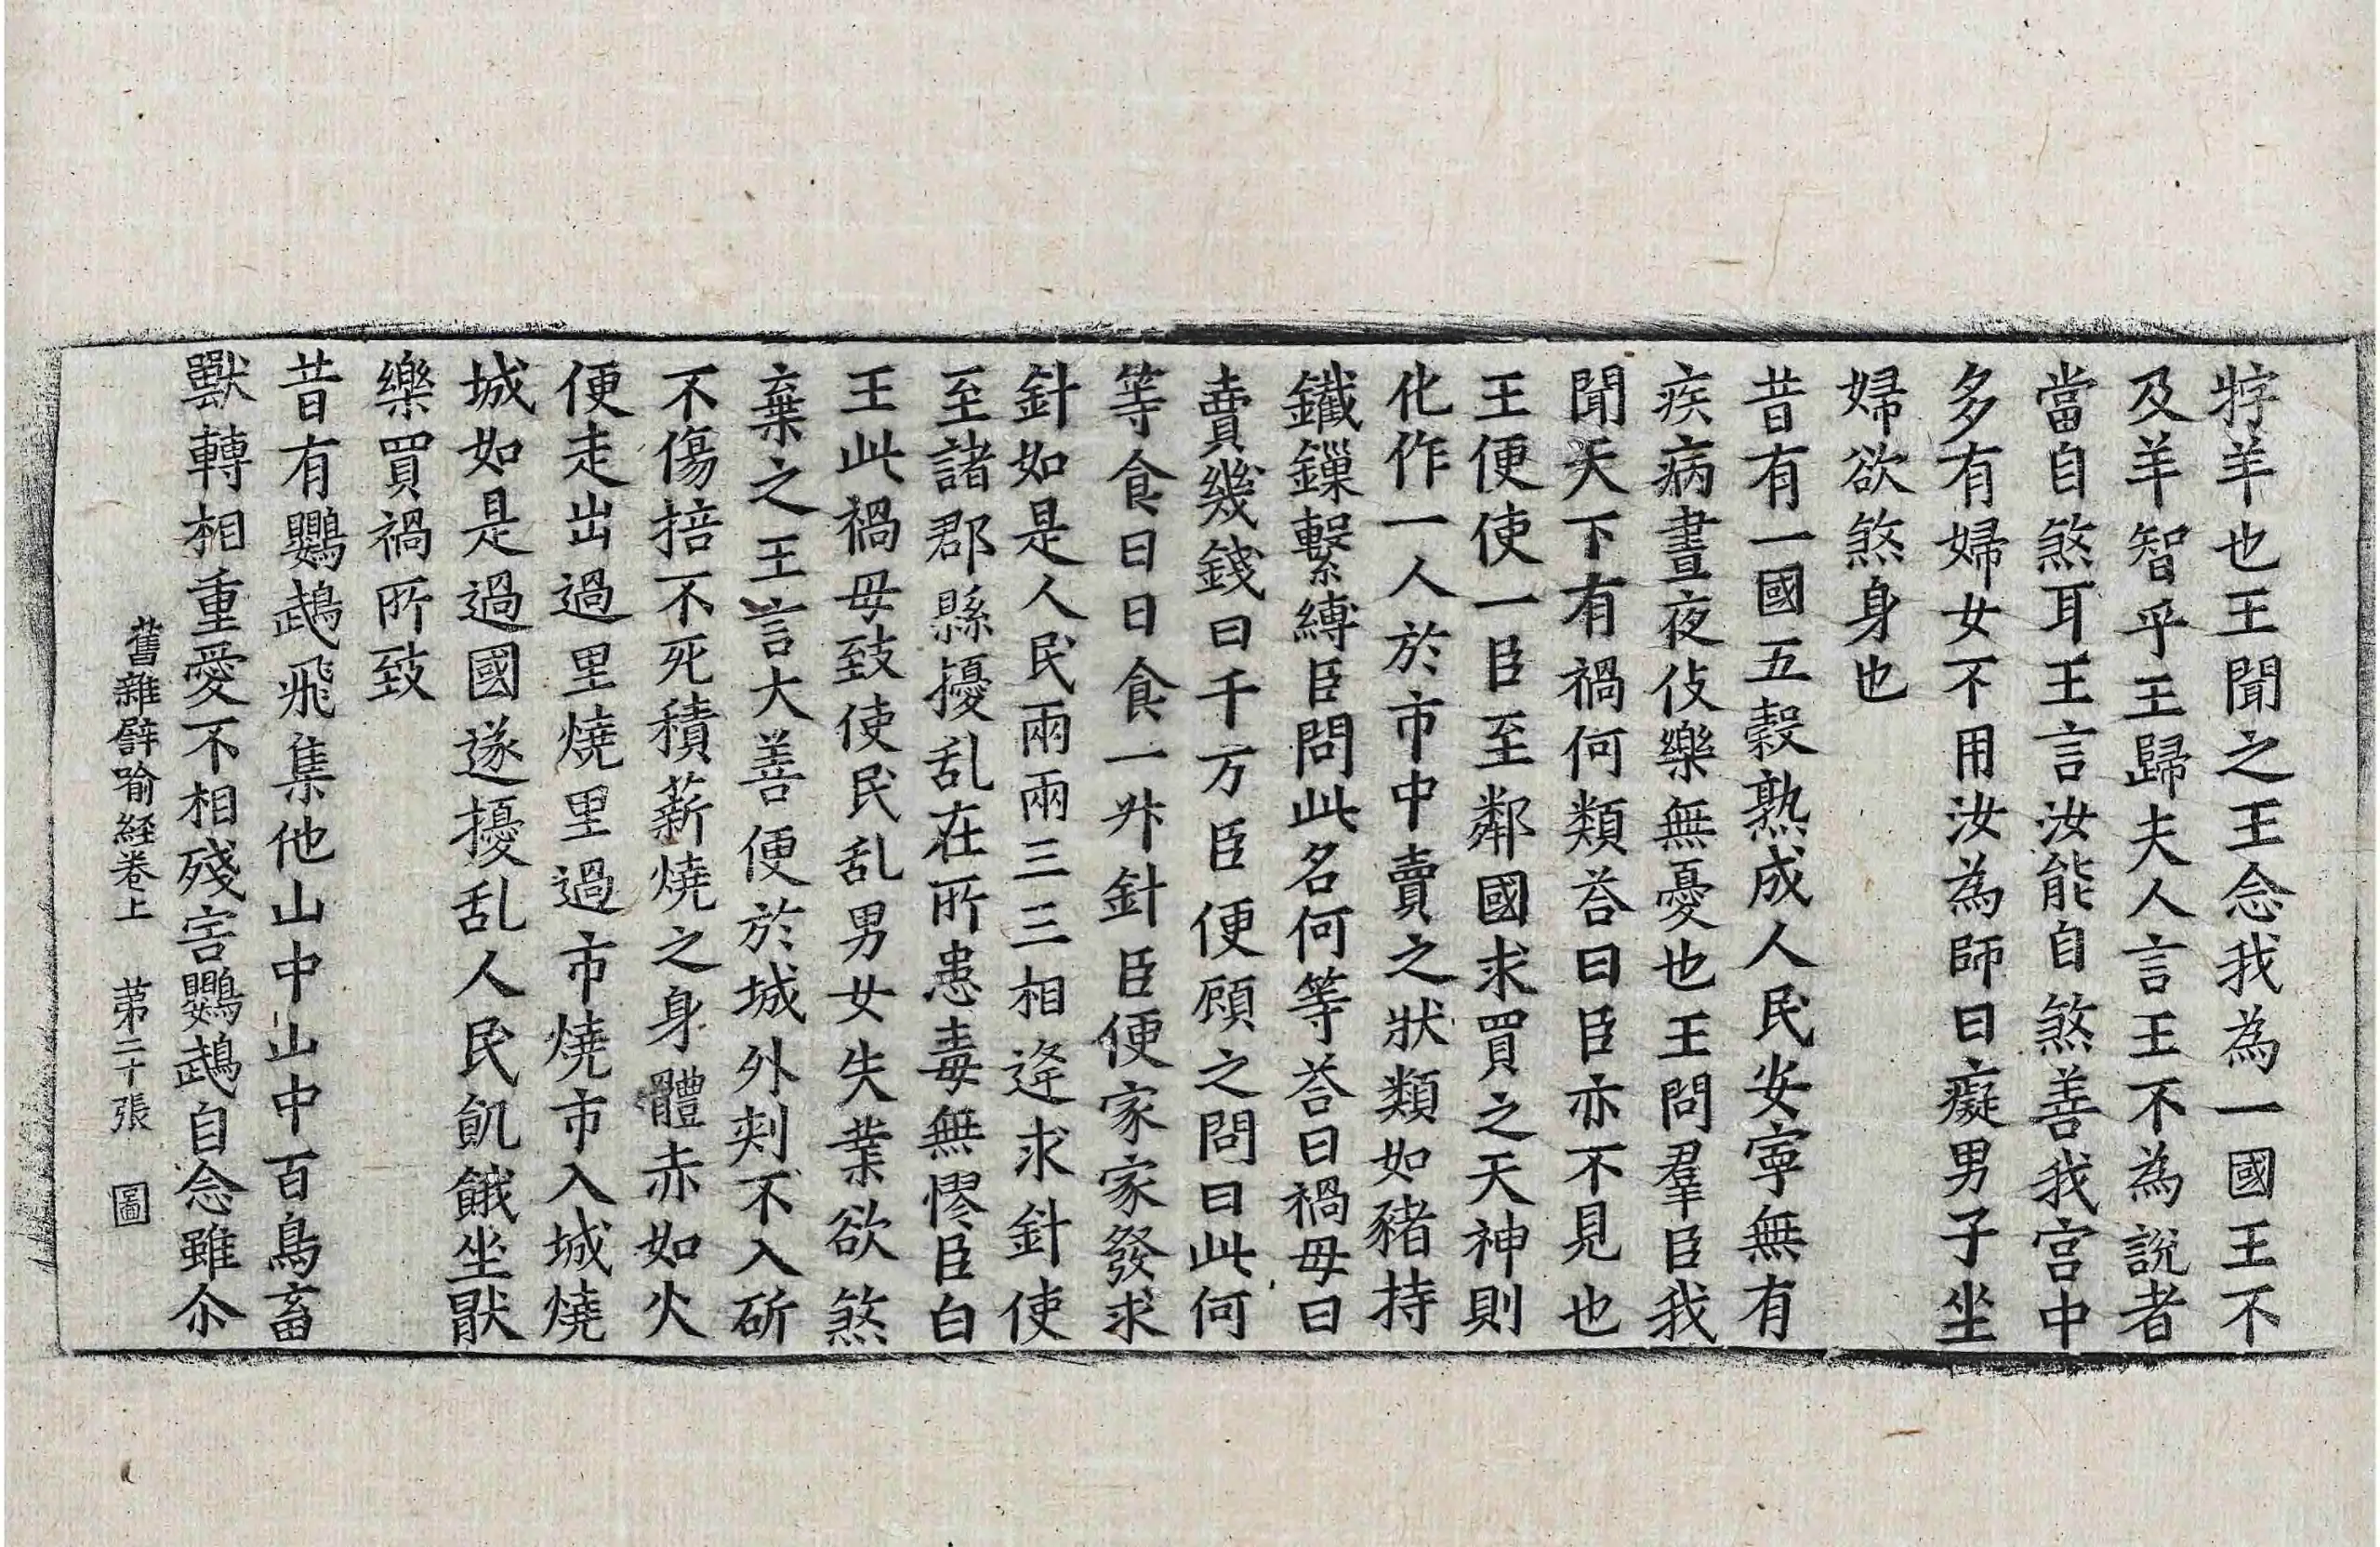 牸羊也王聞之王念我為一國王不
及羊智乎王歸夫人言王不為說者
當自煞耳王言汝能自煞善我宮中
多有婦女不用汝為師曰癡男子坐
婦欲煞身也
昔有一國五穀熟成人民安寧無有
疾病晝夜伎樂無憂也王問羣臣我
聞天下有禍何類荅曰臣亦不見也
王便使一臣至鄰國求買之天神則
化作一人於市中賣之狀類如豬持
鐵鏁繫縛臣問此名何等荅曰禍母曰
賣幾錢曰千万臣便顧之問曰此何
等食曰日食一升針臣便家家發求
針如是人民兩兩三三相逄求針使
至諸郡縣擾乱在所患毒無憀臣白
王此禍母致使民乱男女失業欲煞
棄之王言大善便於城外刾不入斫
不傷掊不死積薪燒之身體赤如火
便走出過里燒里過市燒市入城燒
城如是過國遂擾乱人民飢餓坐猒
樂買禍所致
昔有鸚鵡飛集他山中山中百鳥畜
獸轉相重愛不相殘害鸚鵡自念雖尒
舊雜譬喻経卷上 第二十張 圖